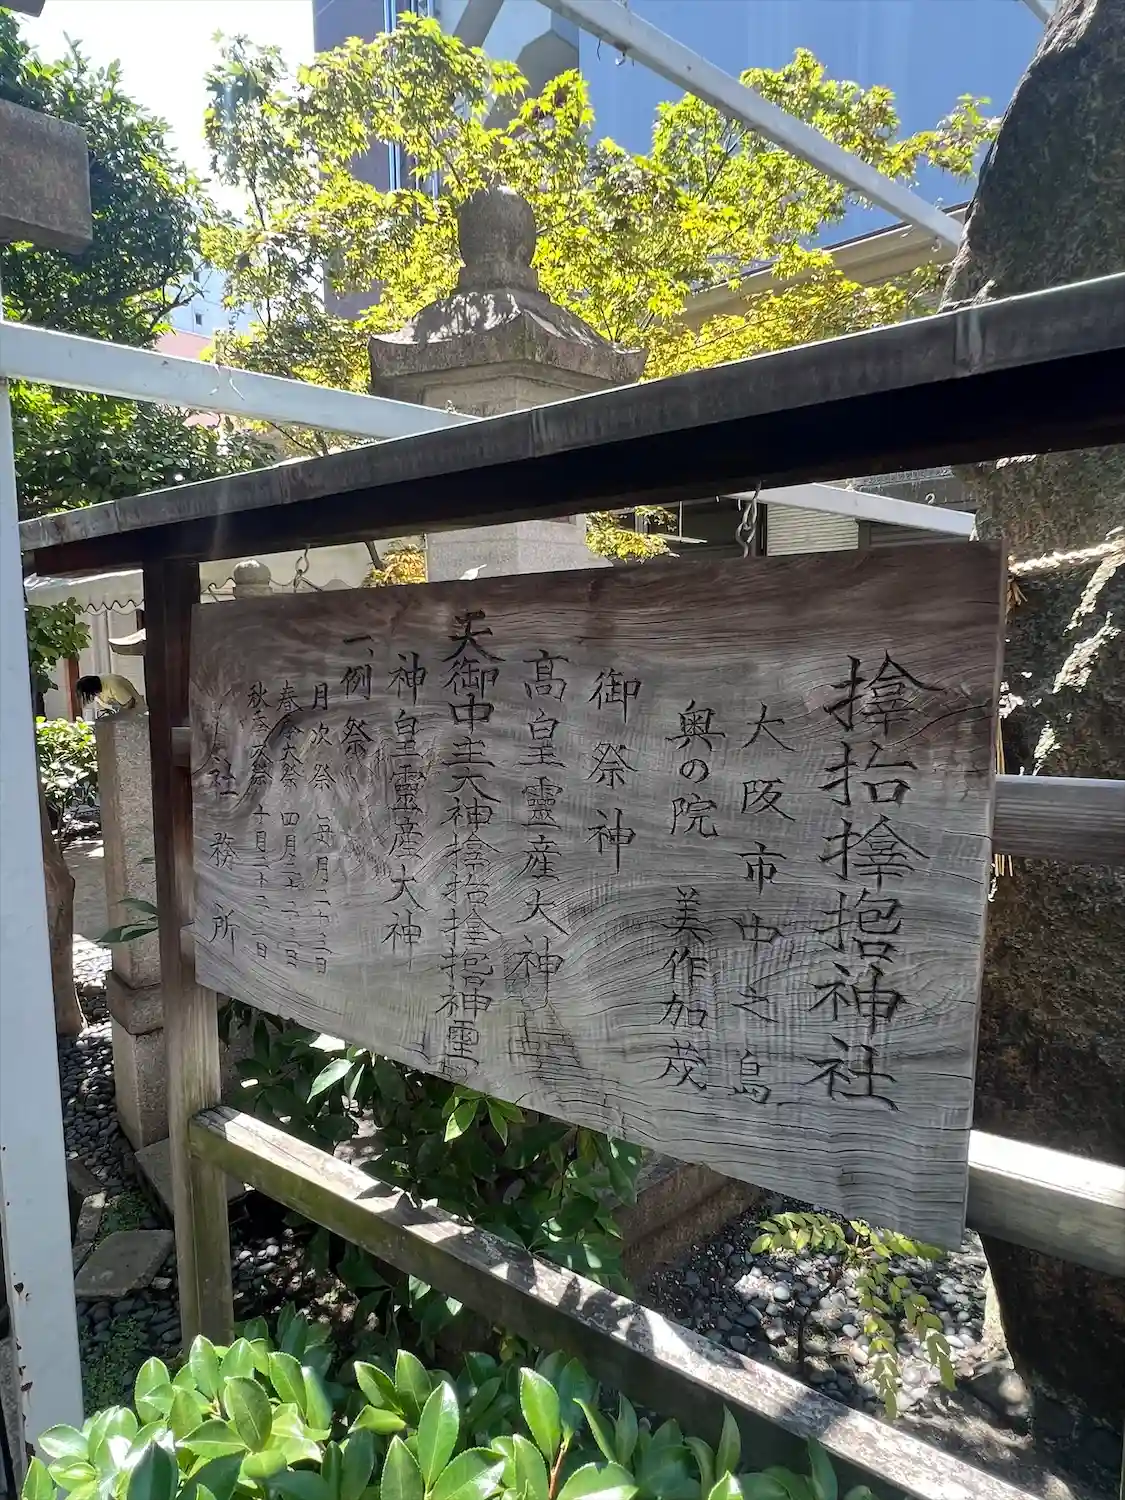 𪮷抬𪮇𪭧神社
大阪市中之島
奥の院 美作加茂
御祭神
髙皇靈産大神
天御中主大神𪮷抬𪮇𪭧神霊
神皇靈産大神
一、例祭
月次祭 毎月二十三日
春季大祭 四月二十二日
秋季大祭 十月二十二日
大社務所